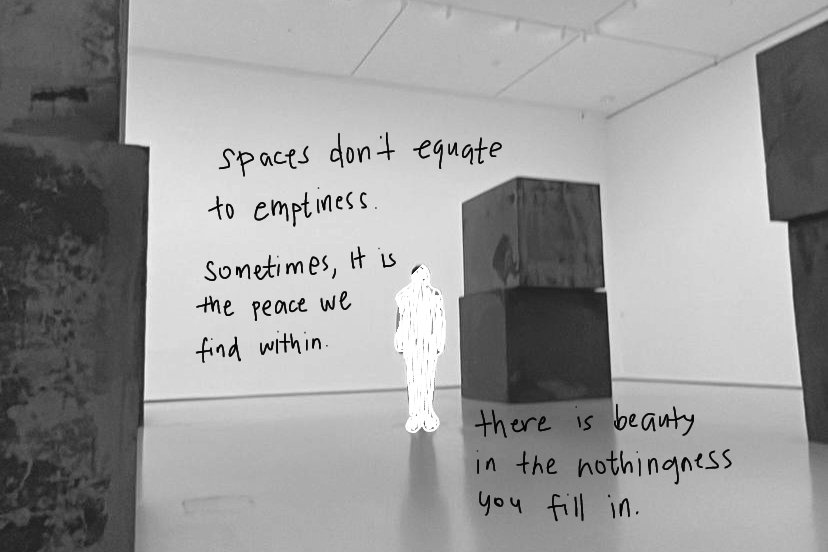 spaces don't equate
to emptiness.
Sometimes, it is
the peace we
find within.
there is beauty
in the nothingness
you fill in.